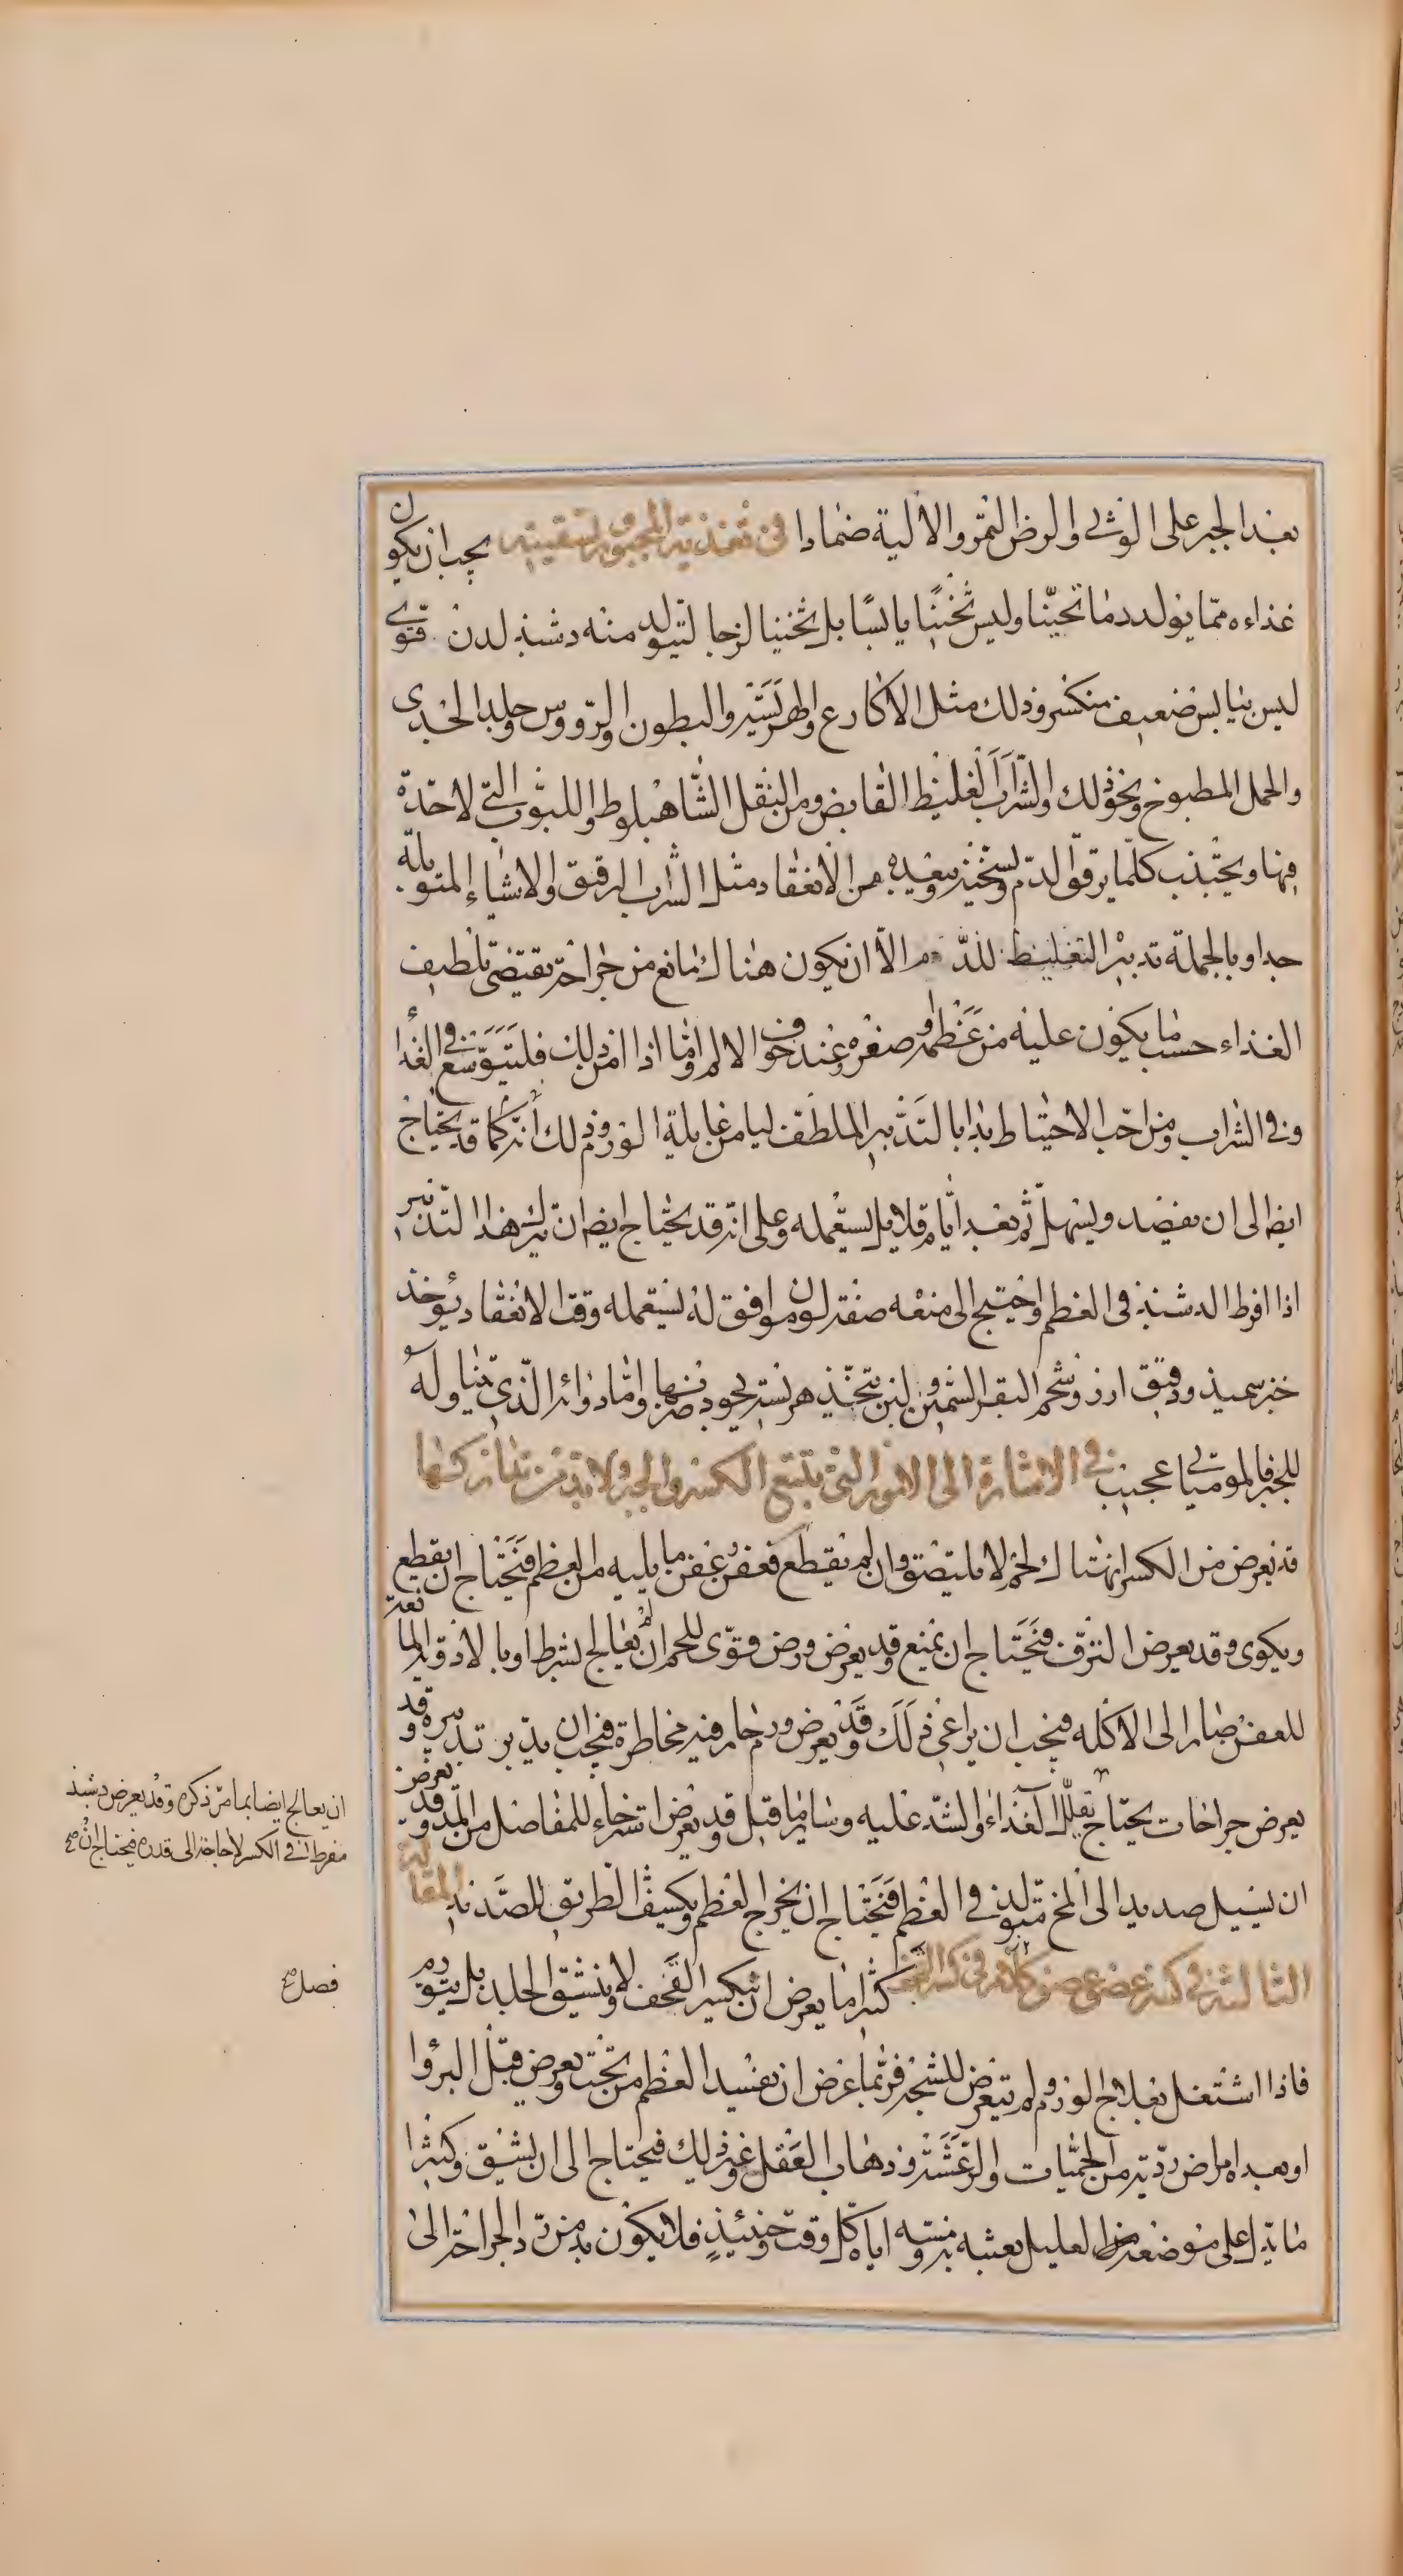 بعد الجبر على الوثي والرض التمر والالية ضمادا في تغذية المجبور وتسقيته يجب ان يكون
غذاءه مما يولد دما ثخينا وليس ثخينا يابسا بل ثخينا لزجا ليتولد منه دشبذ لدن قوي
ليس بيابس ضعيف منكسر وذلك مثل الاكارع والهريسة والبطون والرووس وجلد الجدى
والحمل المطبوخ ونحو ذلك والشراب الغليظ القابض ومن النقل الشاهبلوط واللبوب التي لا حدة
فيها ويجتنب كلما يرقق الدم ويسخنه ويبعده من الانعقاد مثل الشراب الرقيق والاشياء المتوبلة
جدا وبالجملة تدبير التغليظ للدم الا ان يكون هناك مانع من جراحة يقتضى تلطيف
الغذاء حسب ما يكون عليه من عظمه او صغره وعند خوف الالم واما اذا امن ذلك فليتوسع في الغذا
وفي الشراب ومن احب الاحتياط بدا بالتدبير الملطف ليامن غايلة الورم وذلك انه كما قد يحتاج
ايضا الى ان يفصد ويسهل ثم بعد ايام قلايل يستعمله وعلى انه قد يحتاج ايضا ان يترك هذا التدبير
اذا افرط الدشبذ في العظم واحتيج الى منعه صفة لون موافق له يستعمله وقت الانعقاد يوخذ
خبز سميذ ودقيق ارز وشحم البقر السمين ولبن يتخذ هريسة يجود ضربها واما دوائه الذي يتناوله
للجبر فالموميائي عجيب في الاشارة الى الامور التي تتبع الكسر والجبر ولا بد من تداركها
قد يعرض من الكسر انهتاك لحم لا يلتصق وان لم يقطع فعفن عفن ما يليه من العظم فيحتاج ان يقطع
ويكوى وقد يعرض النزف فيحتاج ان يمنع وقد يعرض ورض قوى للحم ان لم يعالج بشرط او بالادوية المانعة
للعفن صار الى الاكله فيجب ان يراعى ذلك وقد يعرض ورم حار فيه مخاطرة فيجب ان يدبر تدبيره وقد
يعرض جراحات يحتاج تقليل الغذاء والشد عليه وسائر ما قيل وقد يعرض استرخاء للمفاصل من المد وقد يعرض
ان يسيل صديد الى المخ متولد في العظم فيحتاج ان يخرج العظم ويكشف الطريق للصديد المقالة
الثالثة في كسر عضو عضو كلام في كسر القحف كثيرا ما يعرض ان ينكسر القحف ولا ينشق الجلد بل يتورم
فاذا اشتغل بعلاج الورم ولم يتعرض للشجة فربما عرض ان يفسد العظم من تحت ويعرض قبل البروا
او بعده امراض ردية من الحميات والرعشة وذهاب العقل وغير ذلك فيحتاج الى ان يشق وكثيرا
ما يدل على موضعه من العليل بعبثه به ومسه اياه كل وقت وحينئذ فلا يكون بد من رد الجراحة الى
ان يعالج ايضا بما مر ذكره وقد يعرض دشبذ
مفرط في الكسر لا حاجة الى قدره فيحتاج ان صح
فصل صح